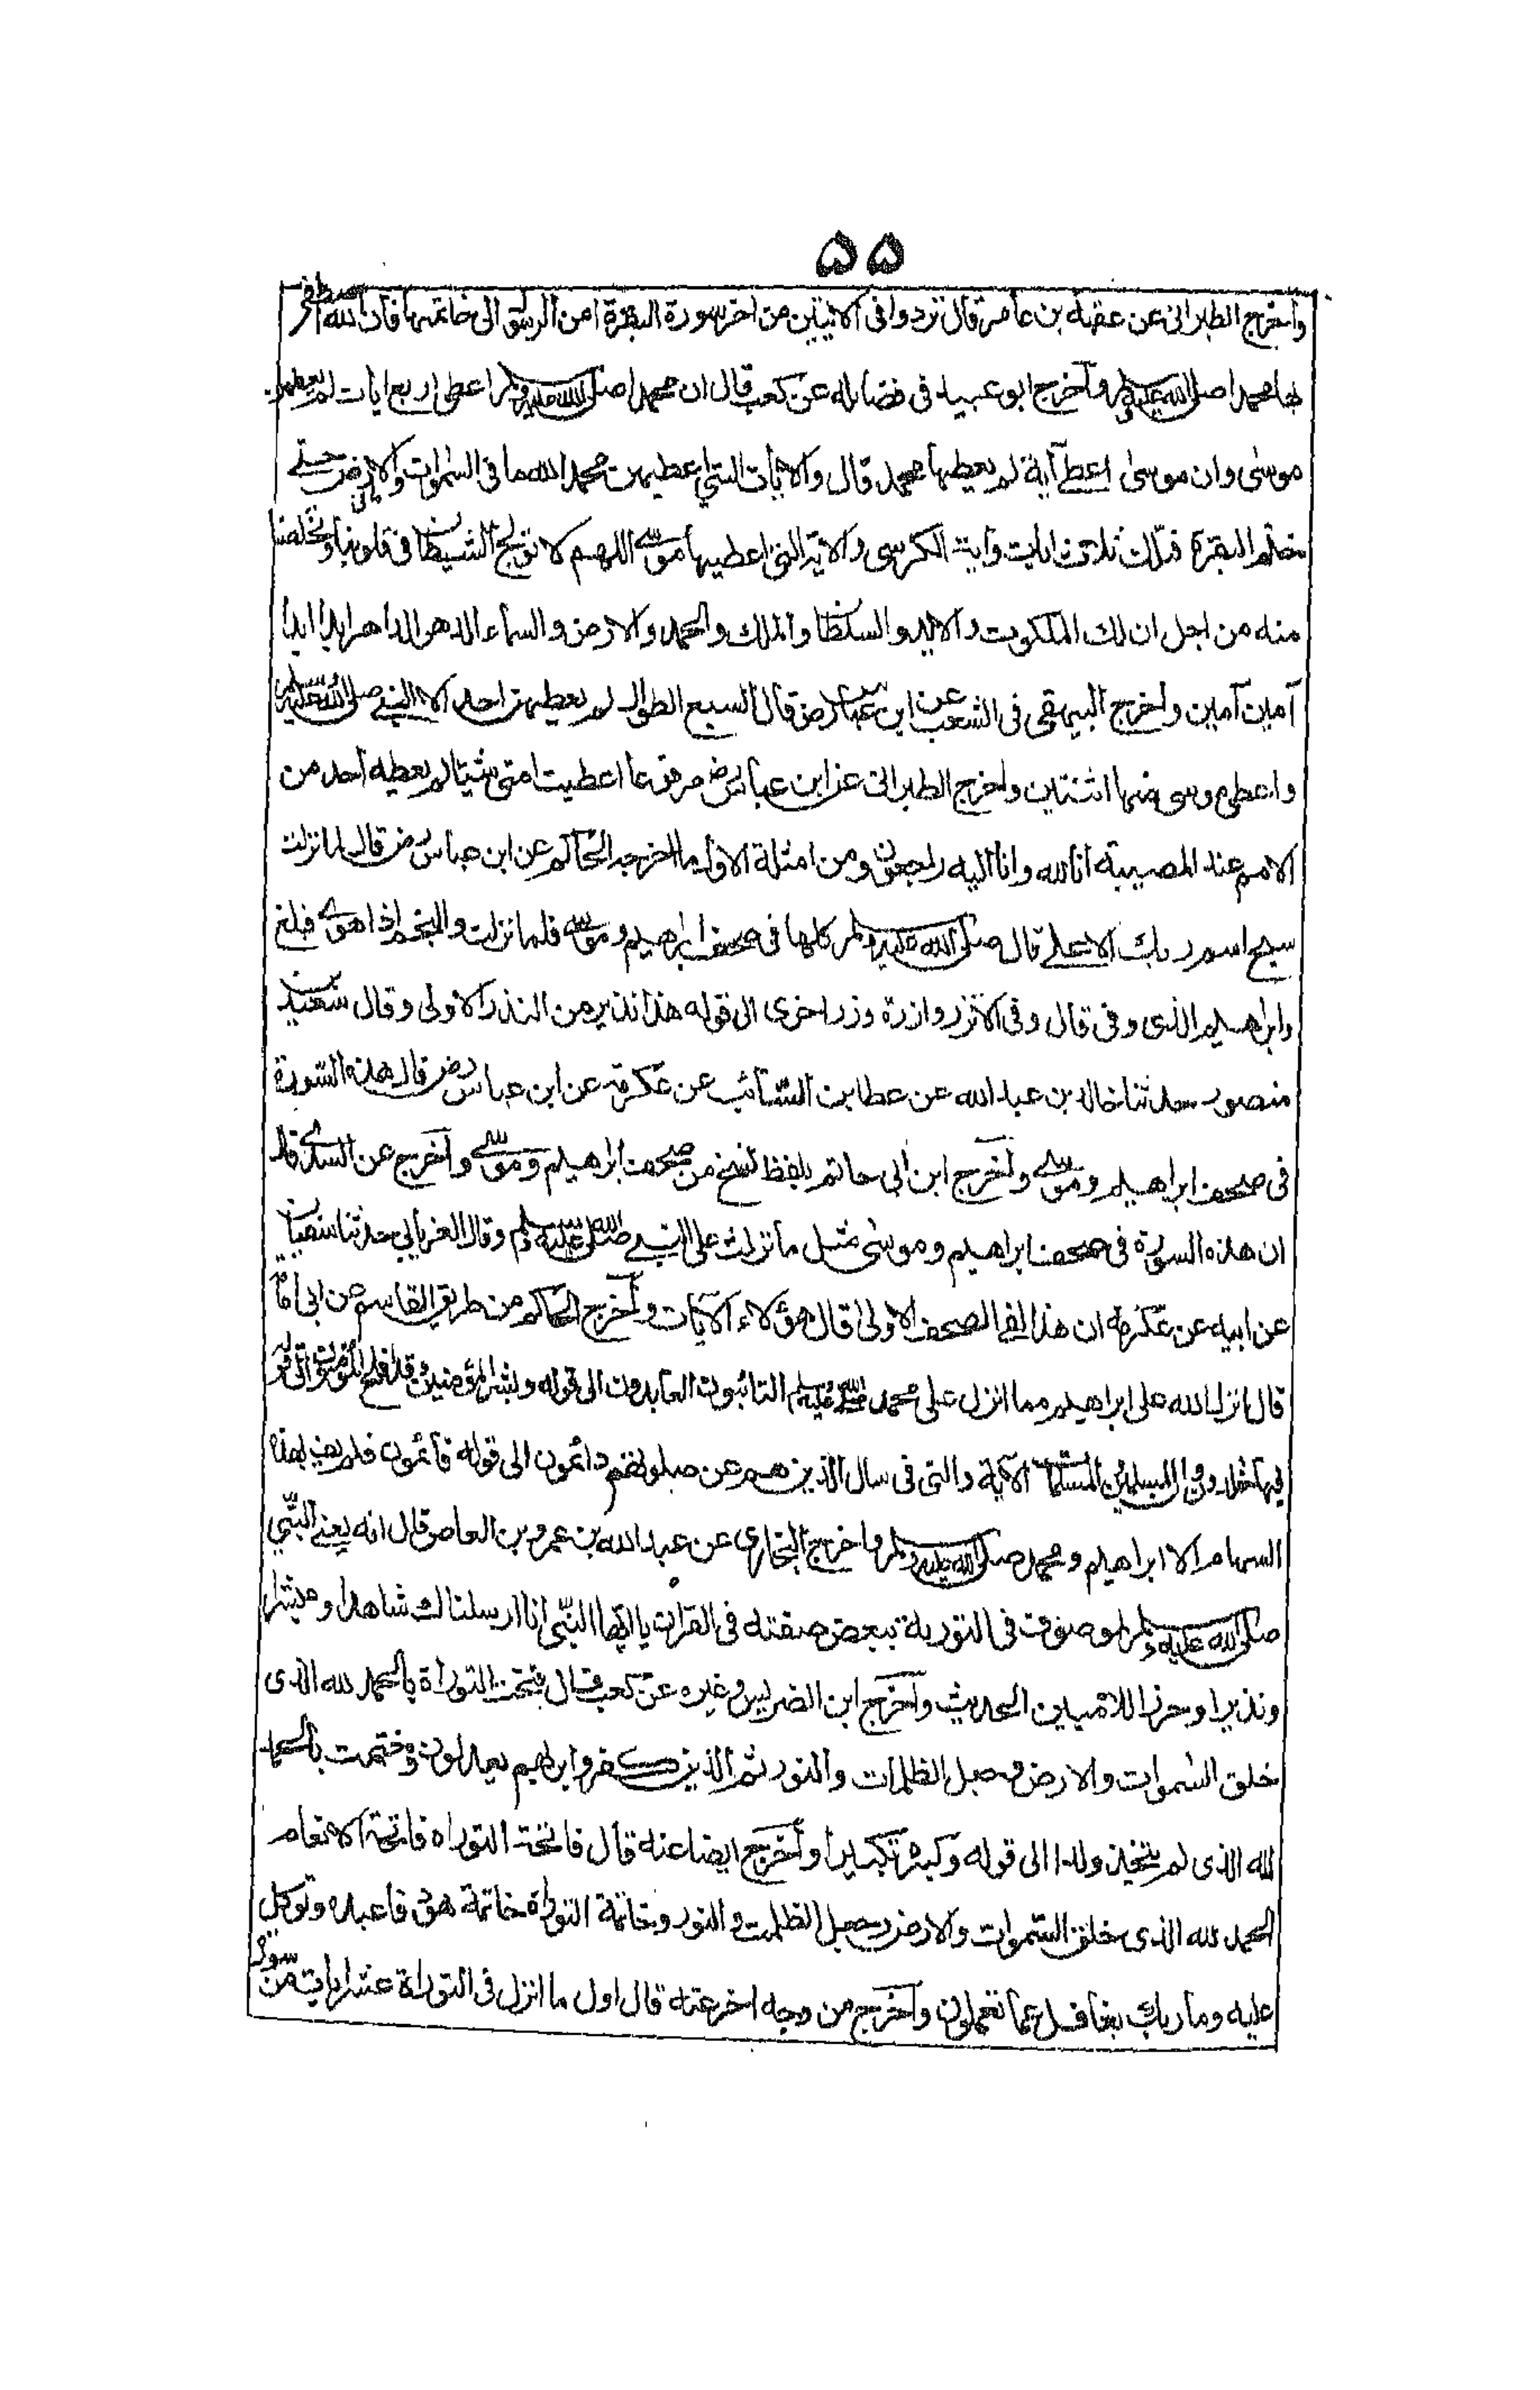 ۵۵
وأخرج الطبرانى عن عقبة بن عامر قال تردوا فى الآيتين من اخر سورة البقرة امن الرسول الى خاتمتها فان الله اصطفى
بها محمدا صلى الله عليه وسلم وأخرج ابو عبيد فى فضائله عن كعب قال ان محمدا صلى الله عليه وسلم اعطى اربع ايات لم يعطهن
موسى وان موسى اعطے آية لم يعطها محمد قال والآيات التي اعطيهن محمد لله ما فى السموات وما فى الارض حتے
ختم البقرة فتلك ثلاث ايات وآية الكرسى والآية التى اعطيها موسى اللهم لا تولج الشيطان فى قلوبنا وخلصنا
منه من اجل ان لك الملكوت والايد والسلطان والملك والحمد والارض والسماء الدهر الداهر ابدا ابدا
آمين آمين وأخرج البيهقى فى الشعب عن ابن عباس رض قال السبع الطوال لم يعطهن احد الا النبي صلى الله عليه وسلم
واعطى موسى منها اثنتين واخرج الطبرانى عن ابن عباس رض مرفوعا اعطيت امتى شيئا لم يعطه احد من
الامم عند المصيبة انا لله وانا اليه راجعون ومن امثلة الاول ما اخرجه الحاكم عن ابن عباس رض قال لما نزلت
سبح اسم ربك الاعلے قال صلى الله عليه وسلم كلها فى صحف ابراهيم وموسى فلما نزلت والنجم اذا هوى فبلغ
وابراهيم الذى وفى قال وفى الا تزر وازرة وزر اخرى الى قوله هذا نذير من النذر الاولى وقال سعيد بن
منصور حدثنا خالد بن عبد الله عن عطا بن السائب عن عكرمة عن ابن عباس رض قال هذه السورة
فى صحف ابراهيم وموسى وأخرج ابن ابى حاتم بلفظ نسخ من صحف ابراهيم وموسى وأخرج عن السدى قال
ان هذه السورة فى صحف ابراهيم وموسى مثل ما نزلت على النبي صلى الله عليه وسلم وقال الفريابي حدثنا سفيان
عن ابيه عن عكرمة ان هذا لفى الصحف الاولى قال هؤلاء الآيات وأخرج الحاكم من طريق القاسم عن ابى امامة
قال انزل الله على ابراهيم مما انزل على محمد صلى الله عليه وسلم التائبون العابدون الى قوله وبشر المؤمنين وقد افلح المؤمنون الى قوله
فيها خلدون وان المسلمين والمسلمات الآية والتى فى سال الذين هم على صلوتهم دائمون الى قوله قائمون فلم يف بهذه
السهام الا ابراهيم ومحمد صلى الله عليه وسلم واخرج البخارى عن عبد الله بن عمرو بن العاص قال انه يعني النبي
صلى الله عليه وسلم لموصوف فى التورية ببعض صفته فى القران يا ايها النبي انا ارسلناك شاهدا ومبشرا
ونذيرا وحرزا للاميين الحديث وأخرج ابن الضريس وغيره عن كعب قال فتحت التوراة بالحمد لله الذى
خلق السموات والارض وجعل الظلمات والنور ثم الذين كفروا بربهم يعدلون وختمت بالحمد
لله الذى لم يتخذ ولدا الى قوله وكبره تكبيرا وأخرج ايضا عنه قال فاتحة التوراه فاتحة الانعام
الحمد لله الذى خلق السموات والارض وجعل الظلمت والنور وخاتمة التوراة خاتمة هود فاعبده وتوكل
عليه وما ربك بغافل عما تعملون وأخرج من وجه اخر عنه قال اول ما انزل فى التوراة عشر ايات من سورة